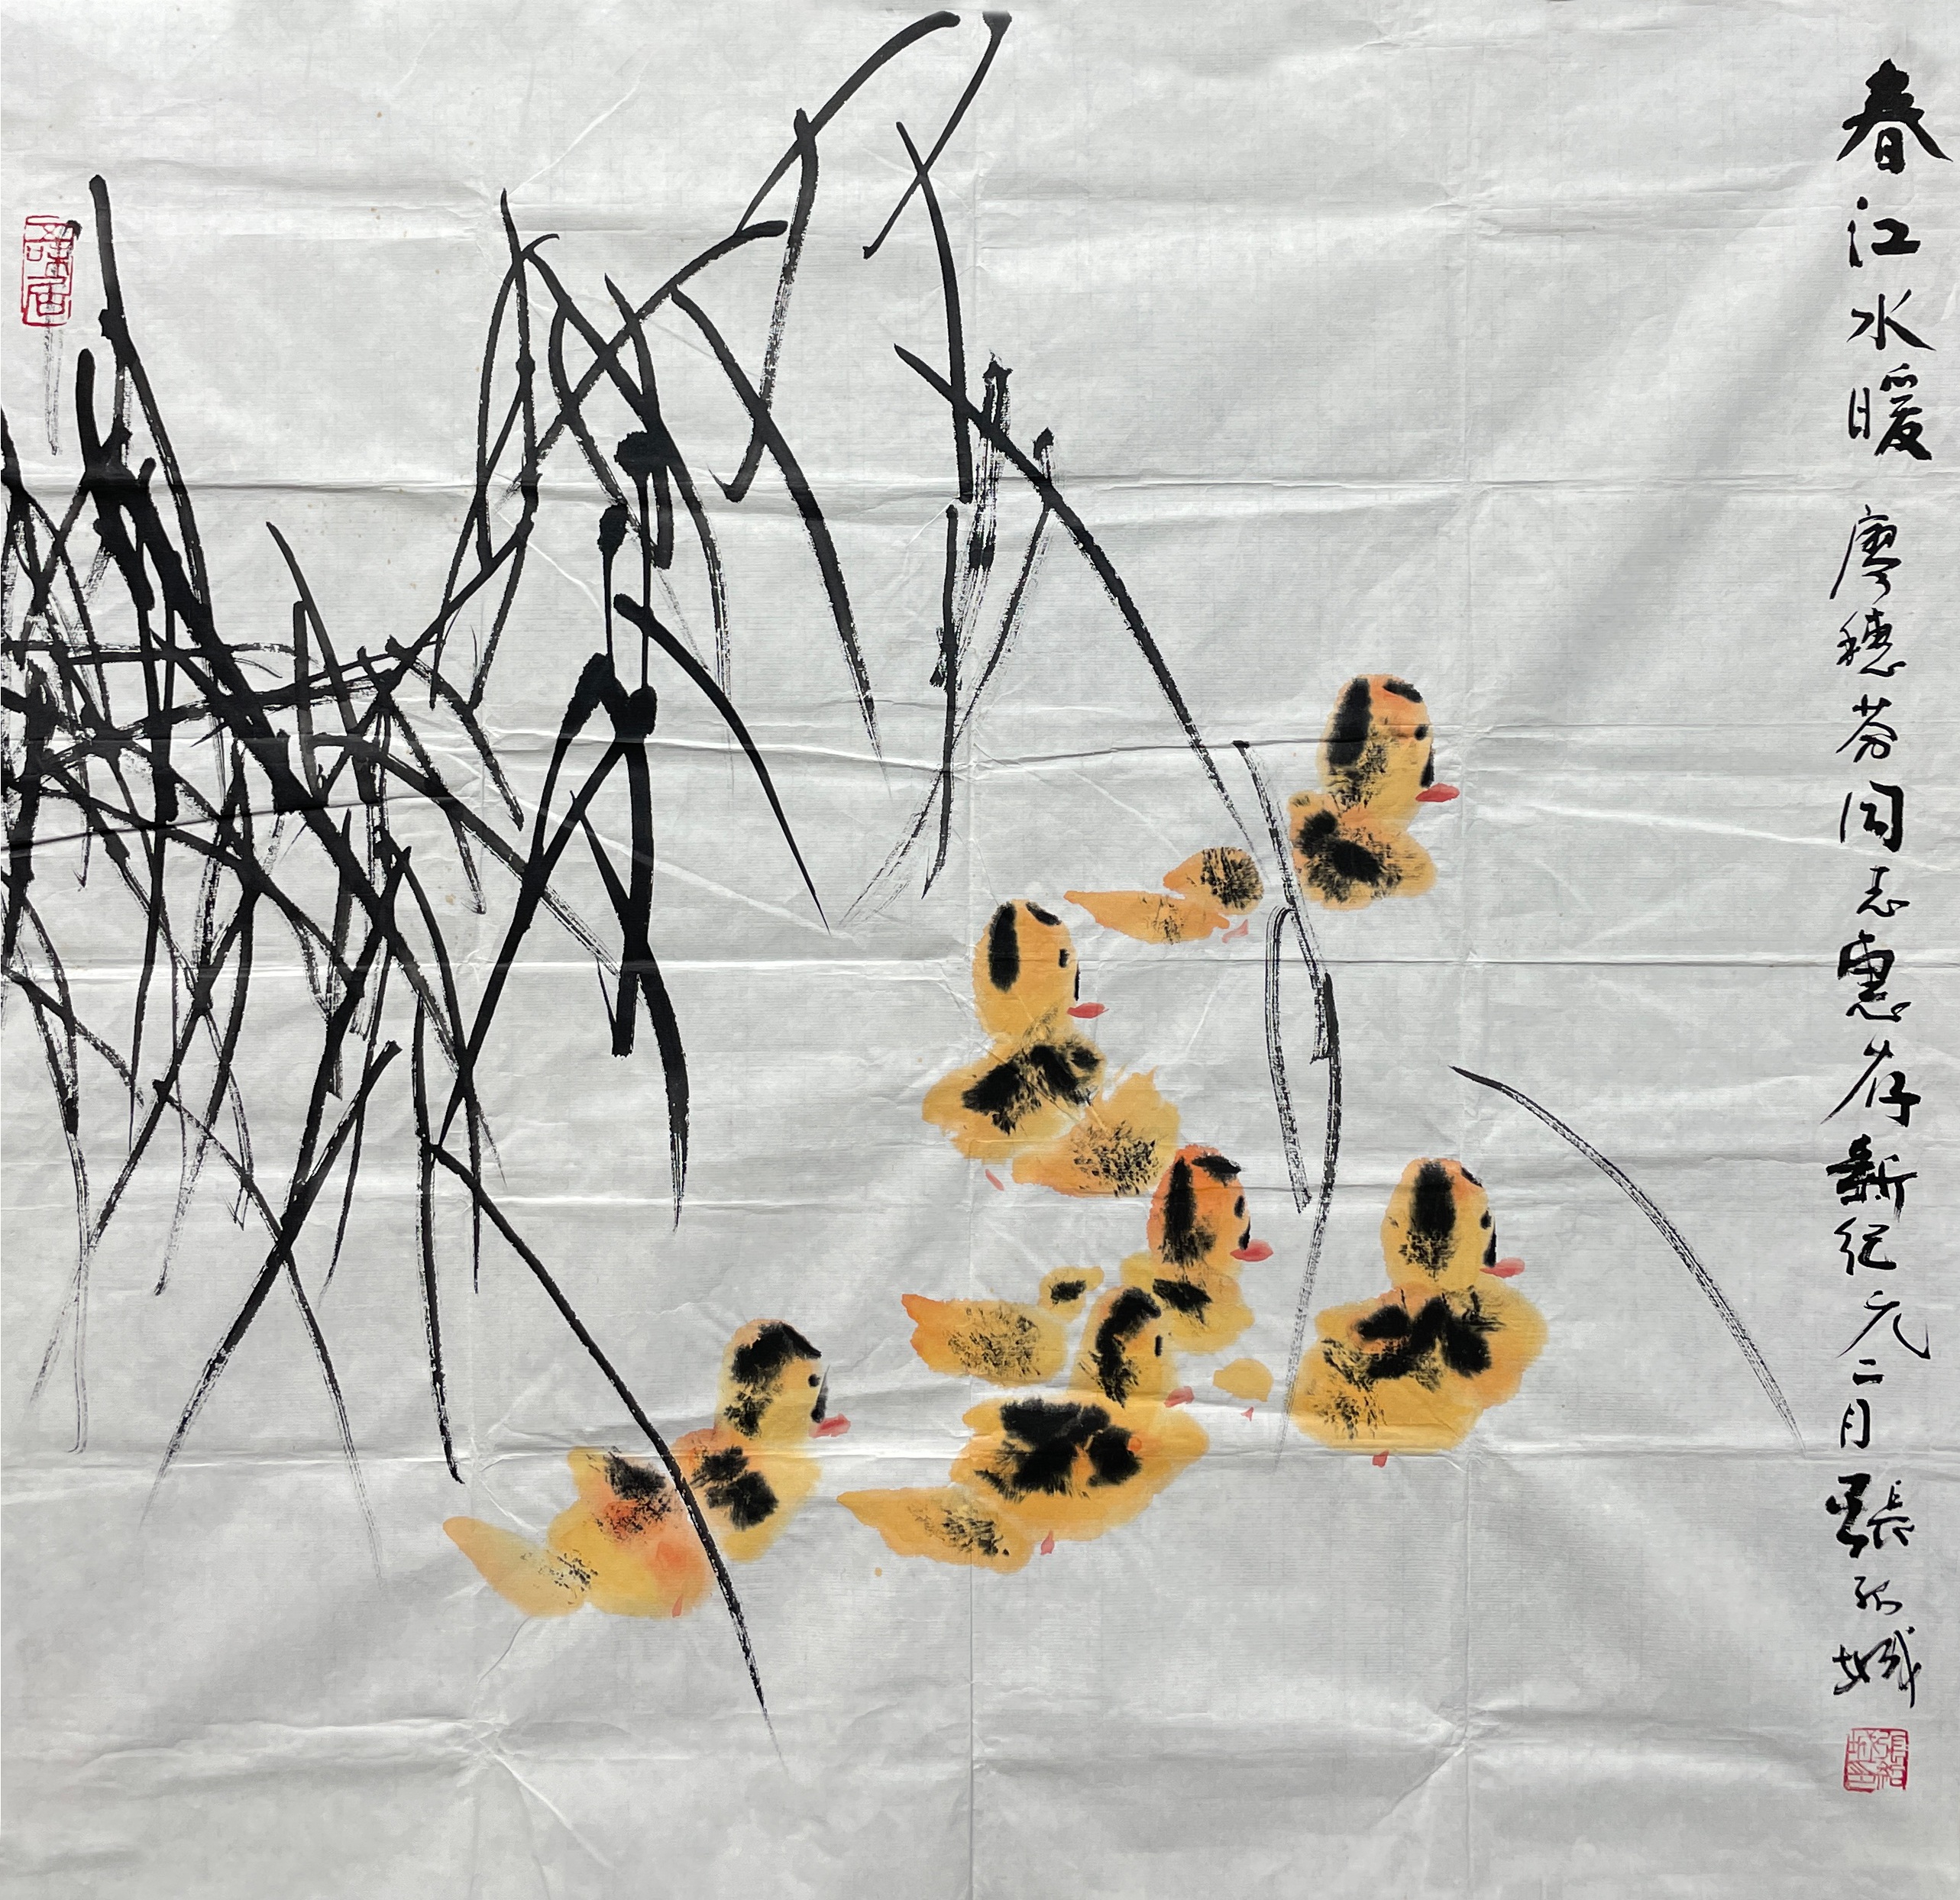 春江水暖 廖穗芬同志惠存 新纪元二月 張弘城